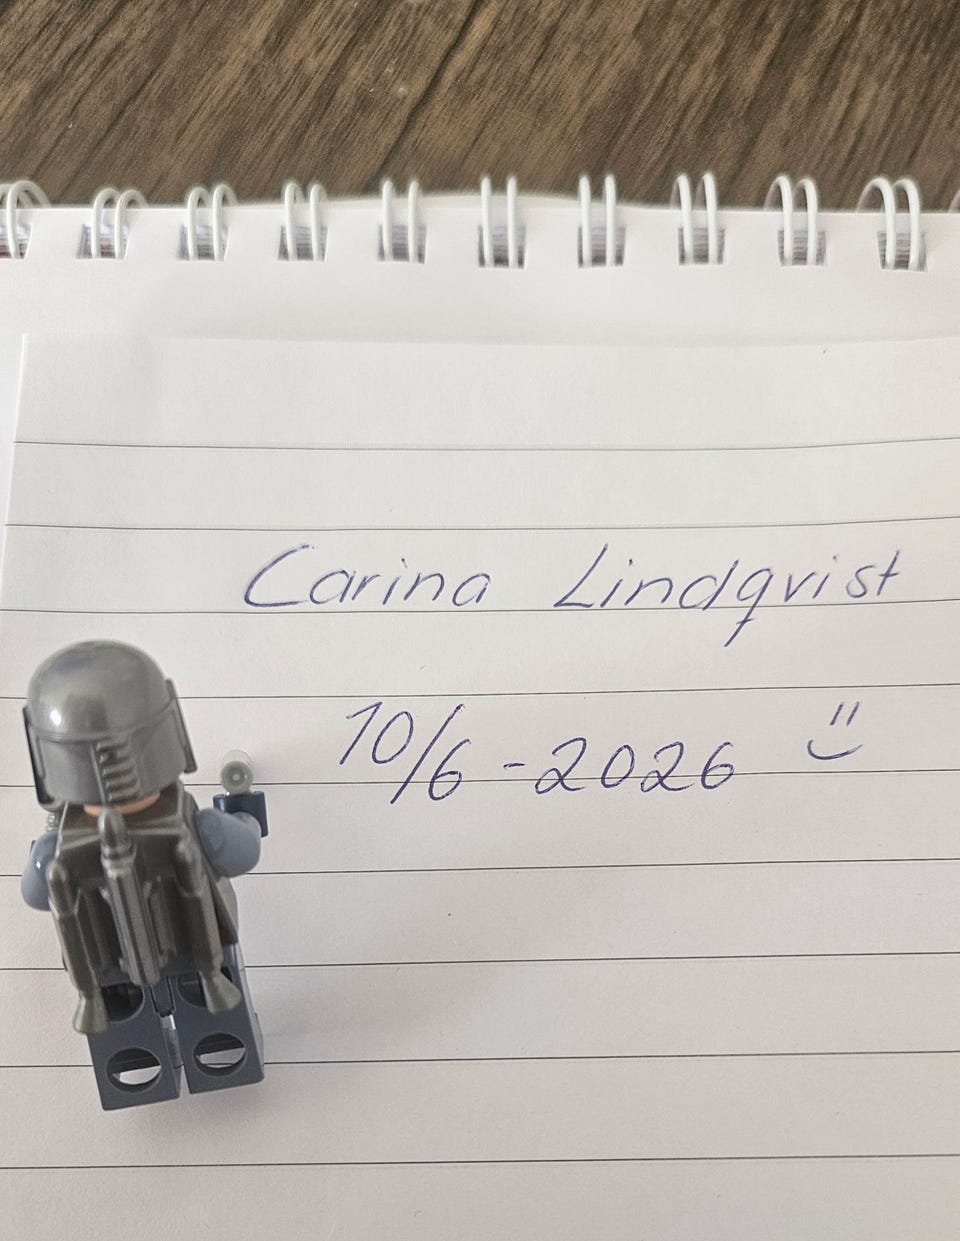 Carina Lindqvist
10/6-2026 =)